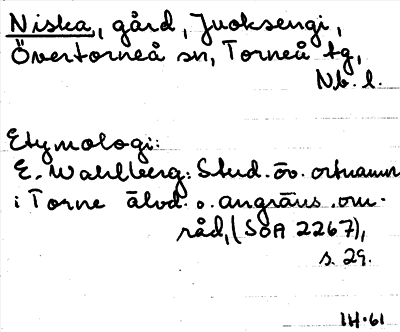 Niska, gård, Juoksengi,
Övertorneå sn, Torneå tg,
Nb. l.
Etymologi:
E. Wahlberg: Stud. öv. ortnamn
i Torne älvd. o. angräns. om-
råd, (SOA 2267),
s. 29.
IH·61